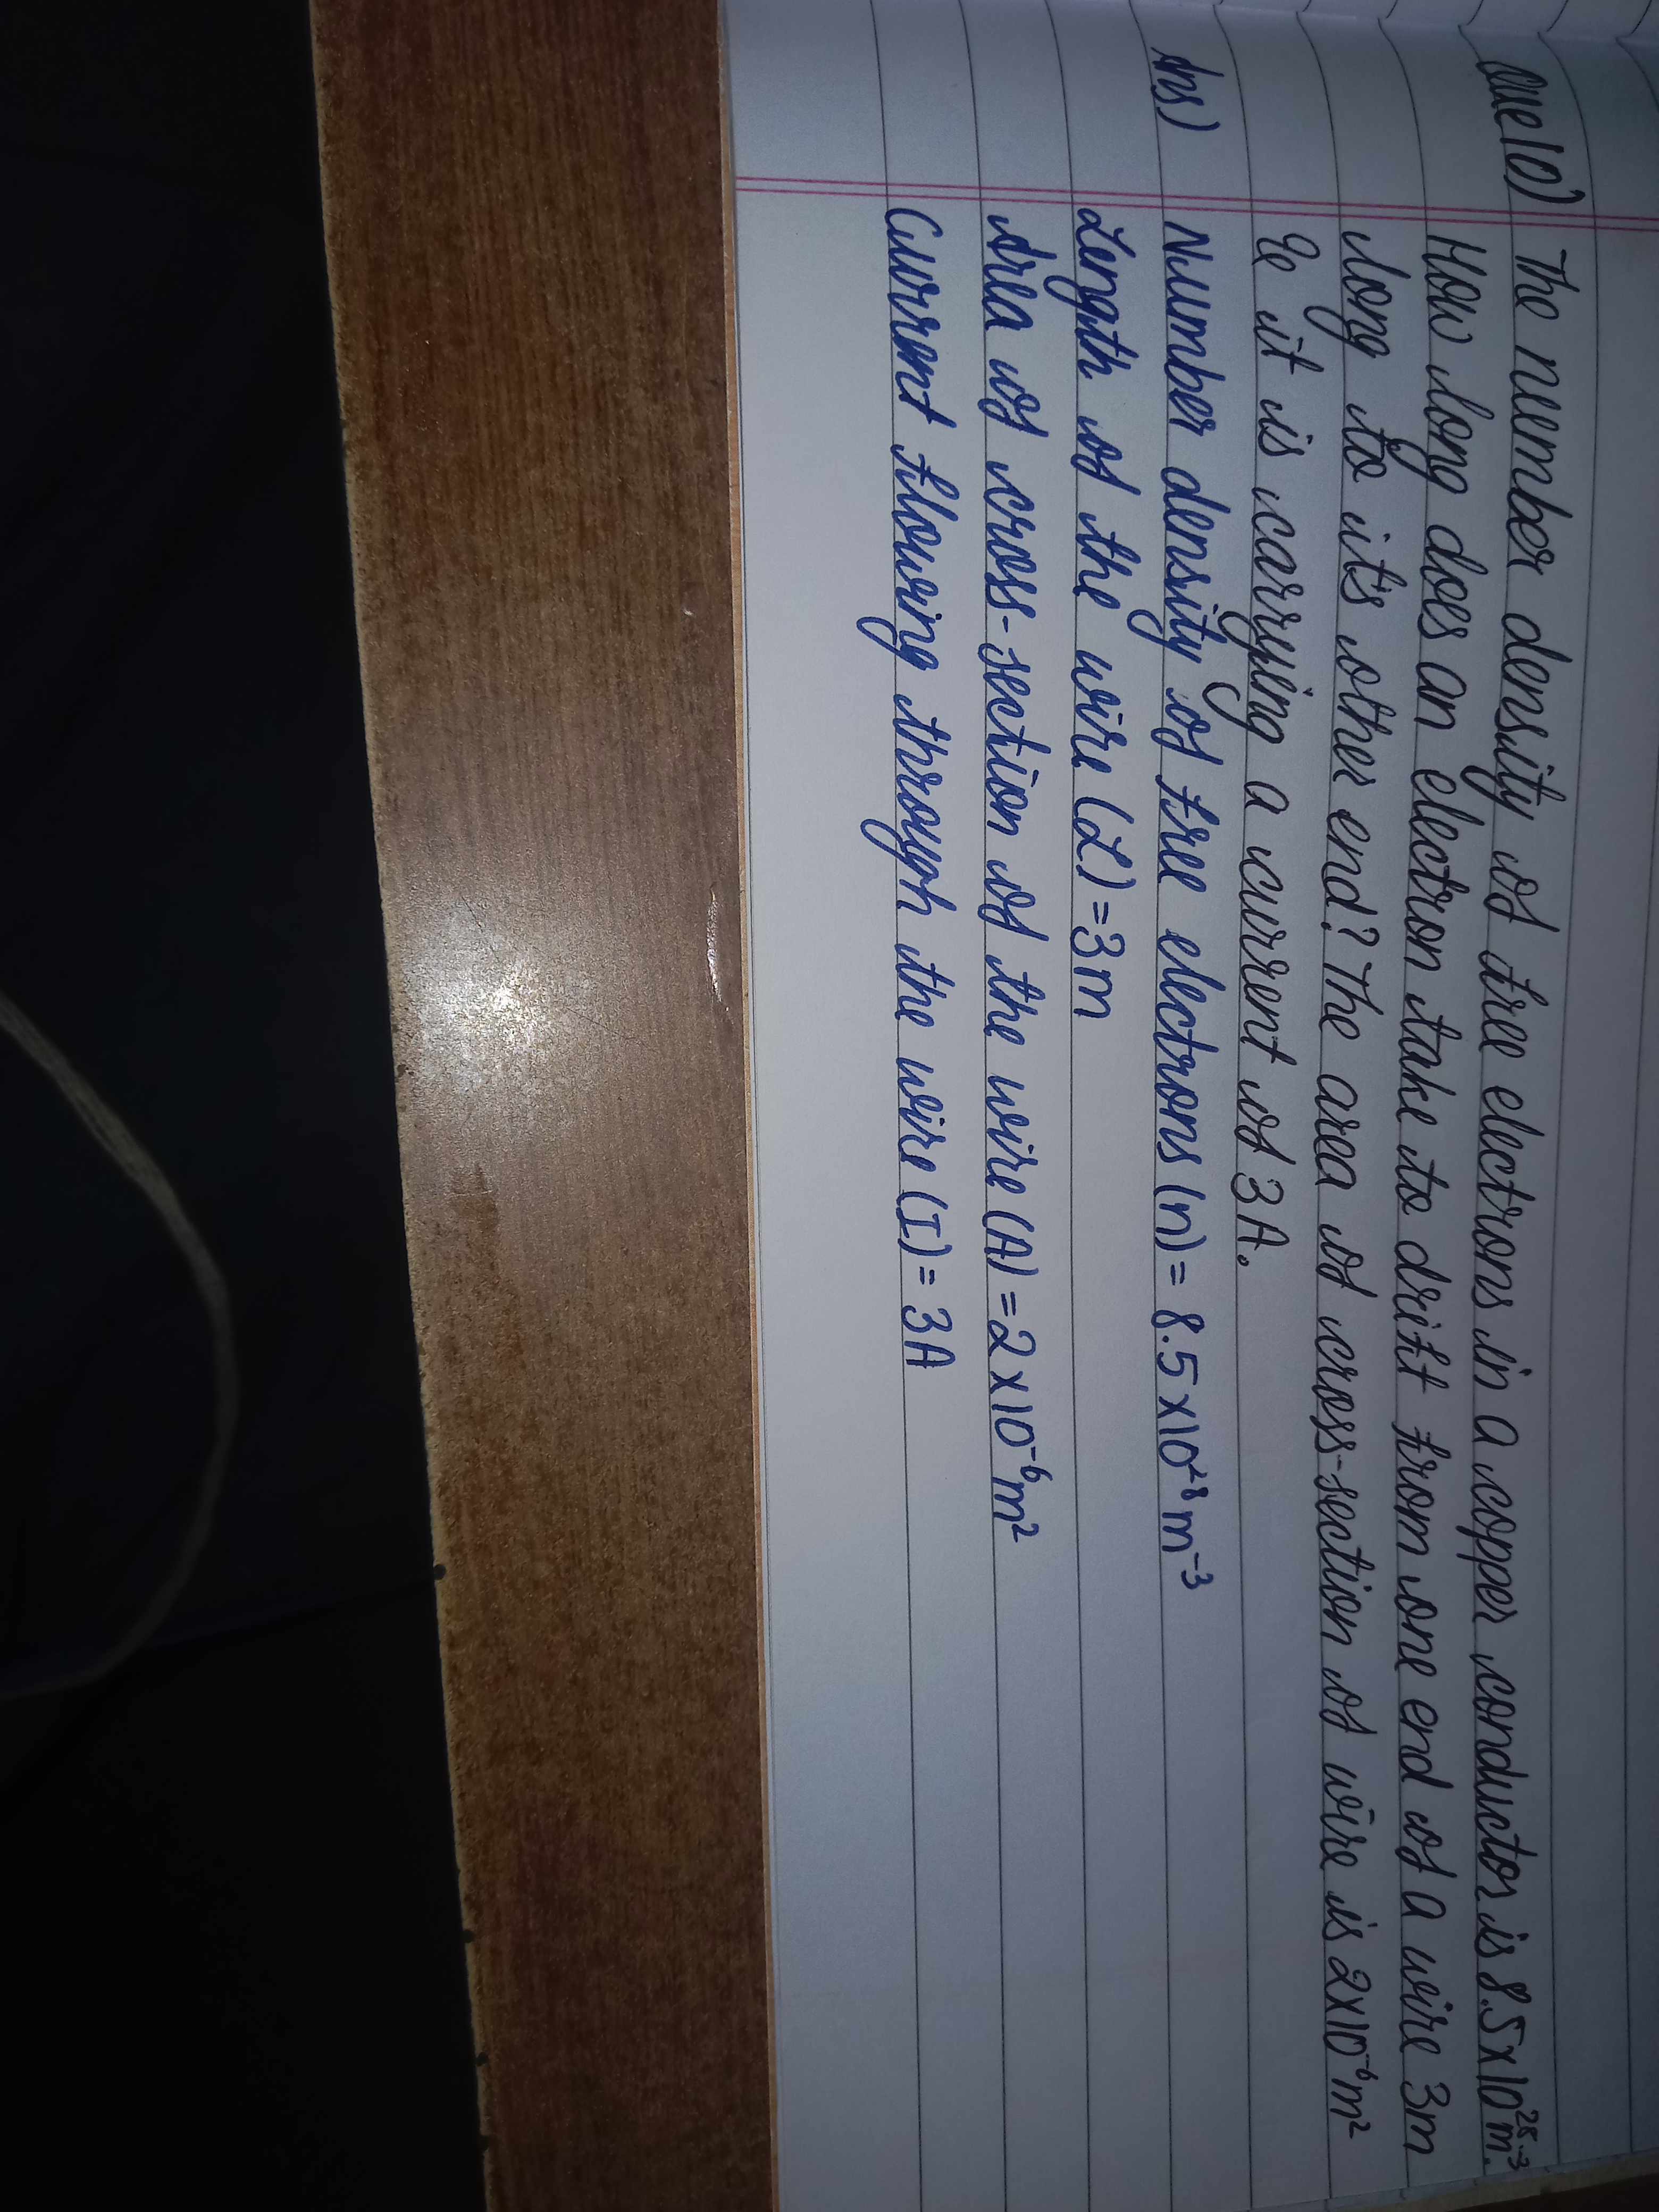 Que10) The number density of free electrons in a copper conductor is 8.5×10²⁸m⁻³.
How long does an electron take to drift from one end of a wire 3m
long to its other end? The area of cross-section of wire is 2×10⁻⁶m²
& it is carrying a current of 3A.
Ans) Number density of free electrons (n) = 8.5×10²⁸m⁻³
Length of the wire (L) = 3m
Area of cross-section of the wire (A) = 2×10⁻⁶m²
Current flowing through the wire (I) = 3A